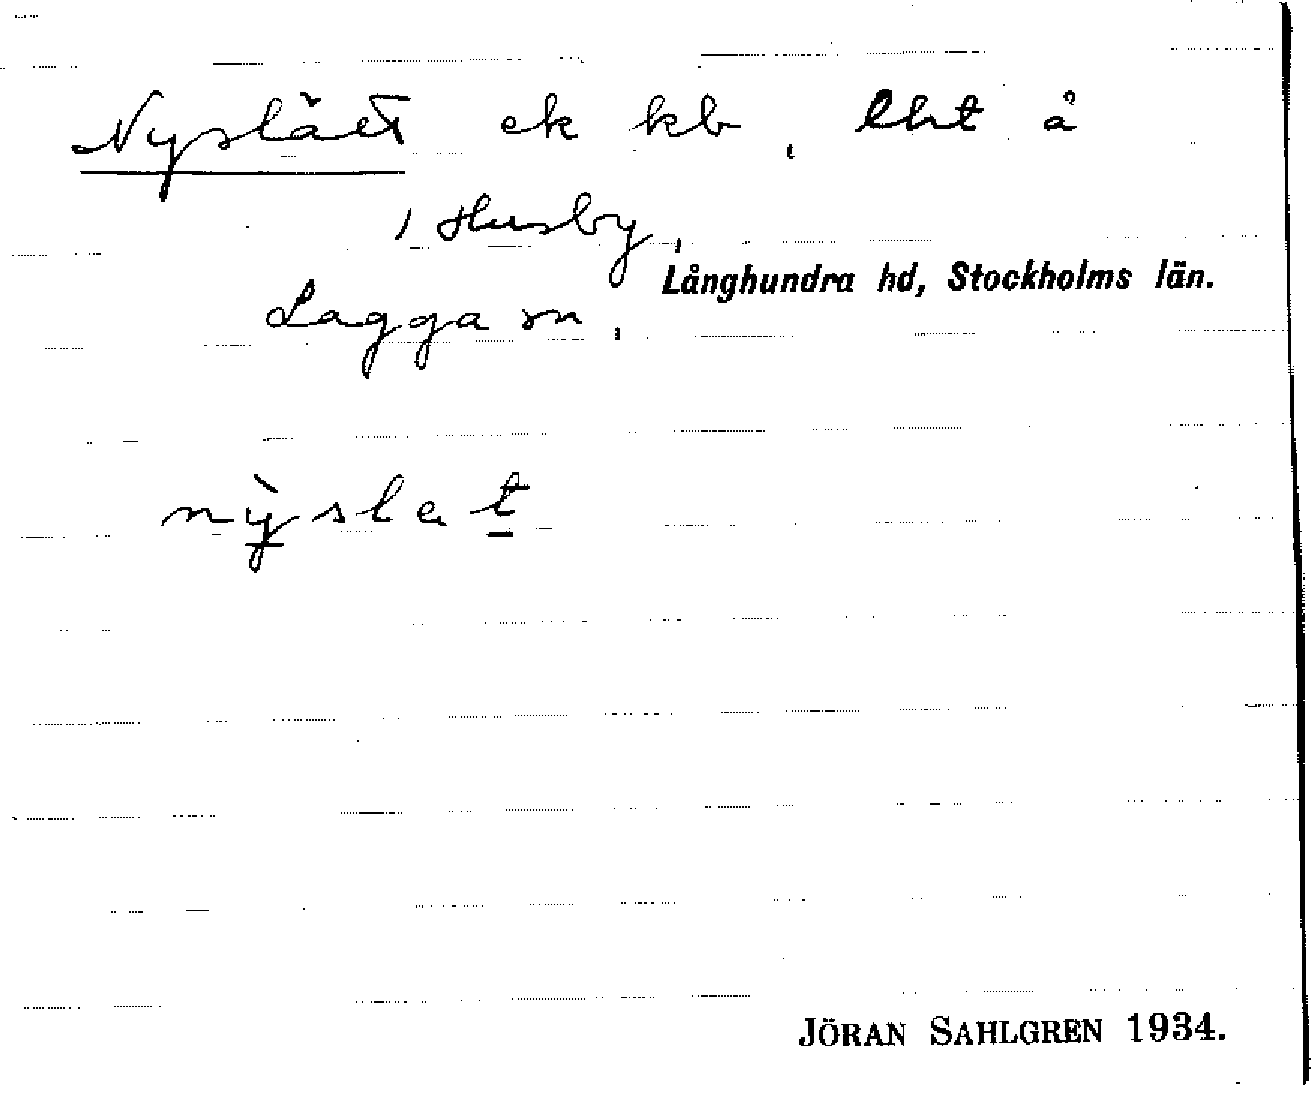 Nyslāet ek kb, lht å
1 Husby,
Långhundra hd, Stockholms län.
Lagga sn,
nỳslet
JÖRAN SAHLGREN 1934.